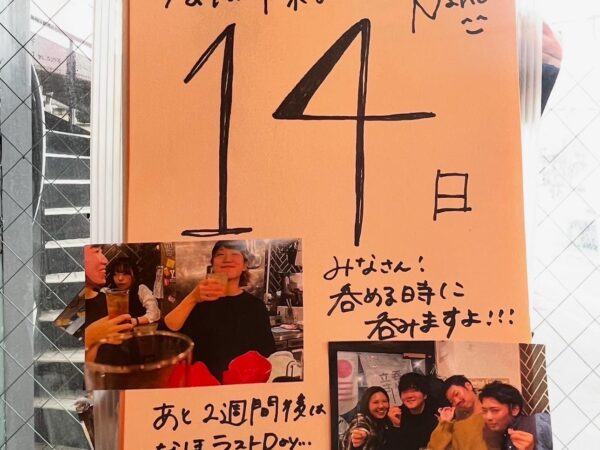 Naho
14
日
みなさん!
呑める時に
呑みますよ!!!
あと 2週間後は
なほ ラストDay...